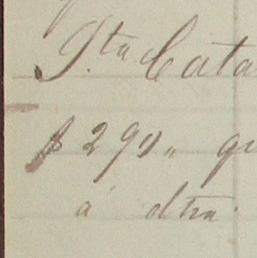 S.ta Cata
$ 290,, qu
á dtra.